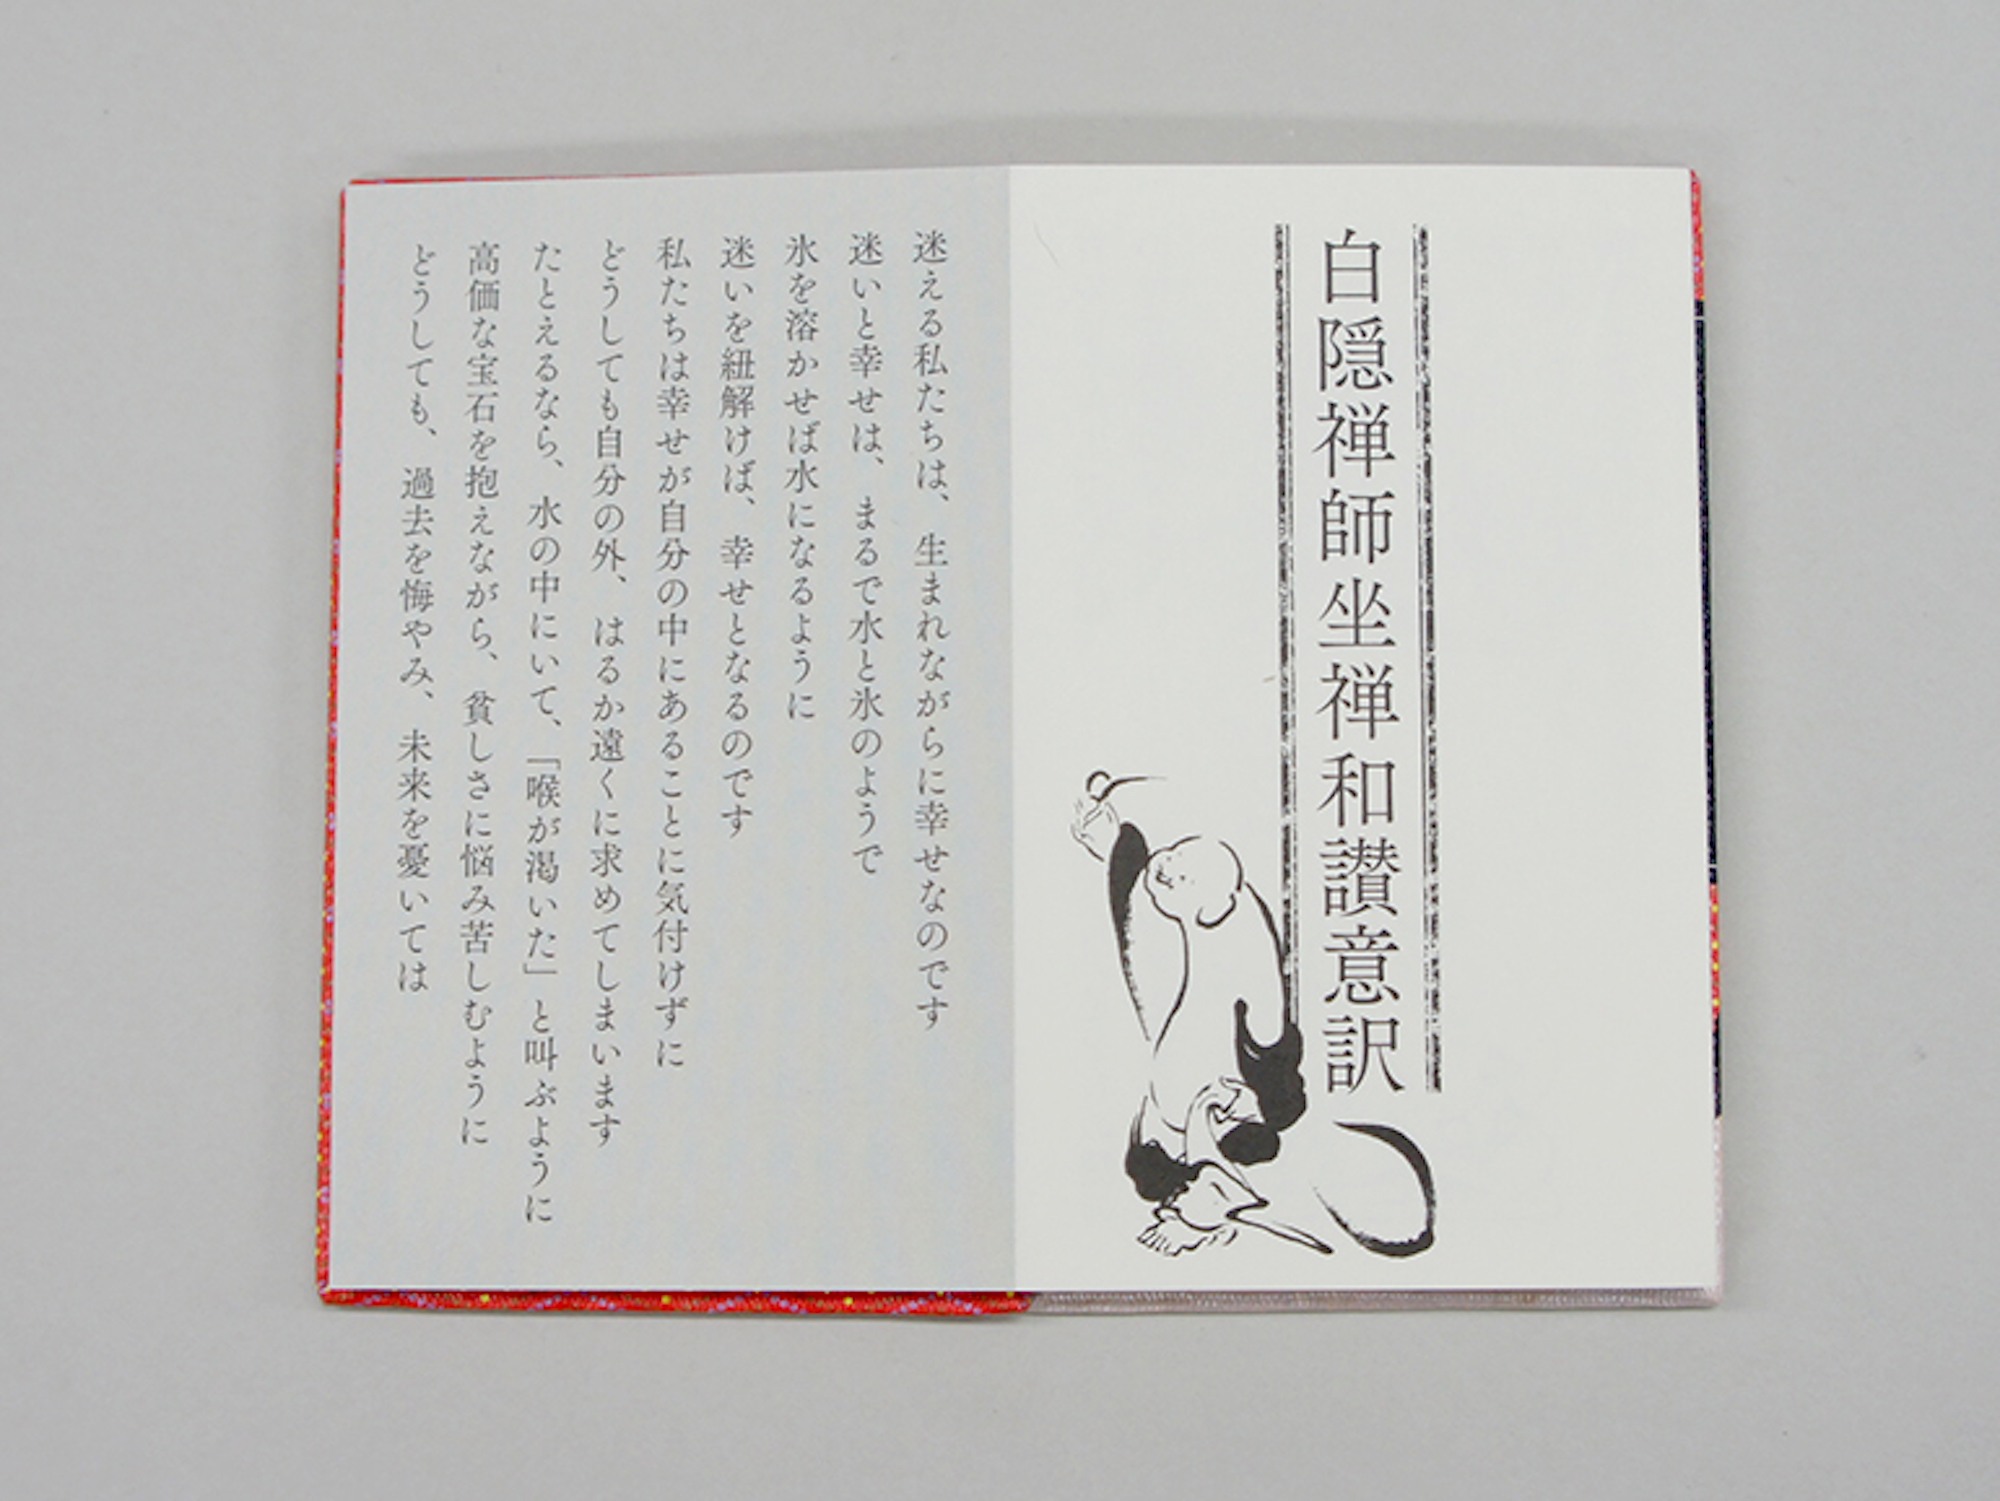 白隠禅師坐禅和讃意訳
迷える私たちは、生まれながらに幸せなのです
迷いと幸せは、まるで水と氷のようで
氷を溶かせば水になるように
迷いを紐解けば、幸せとなるのです
私たちは幸せが自分の中にあることに気付けずに
どうしても自分の外、はるか遠くに求めてしまいます
たとえるなら、水の中にいて、「喉が渇いた」と叫ぶように
高価な宝石を抱えながら、貧しさに悩み苦しむように
どうしても、過去を悔やみ、未来を憂いては